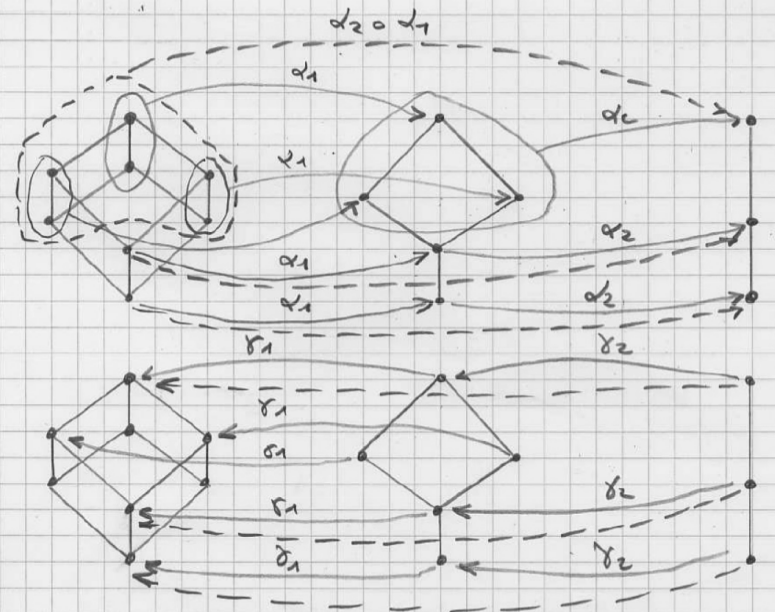 α₂ ∘ α₁
α₁
α₂
α₁
α₂
α₁
α₁
α₂
γ₁
γ₂
γ₁
σ₁
γ₁
γ₂
γ₁
γ₂